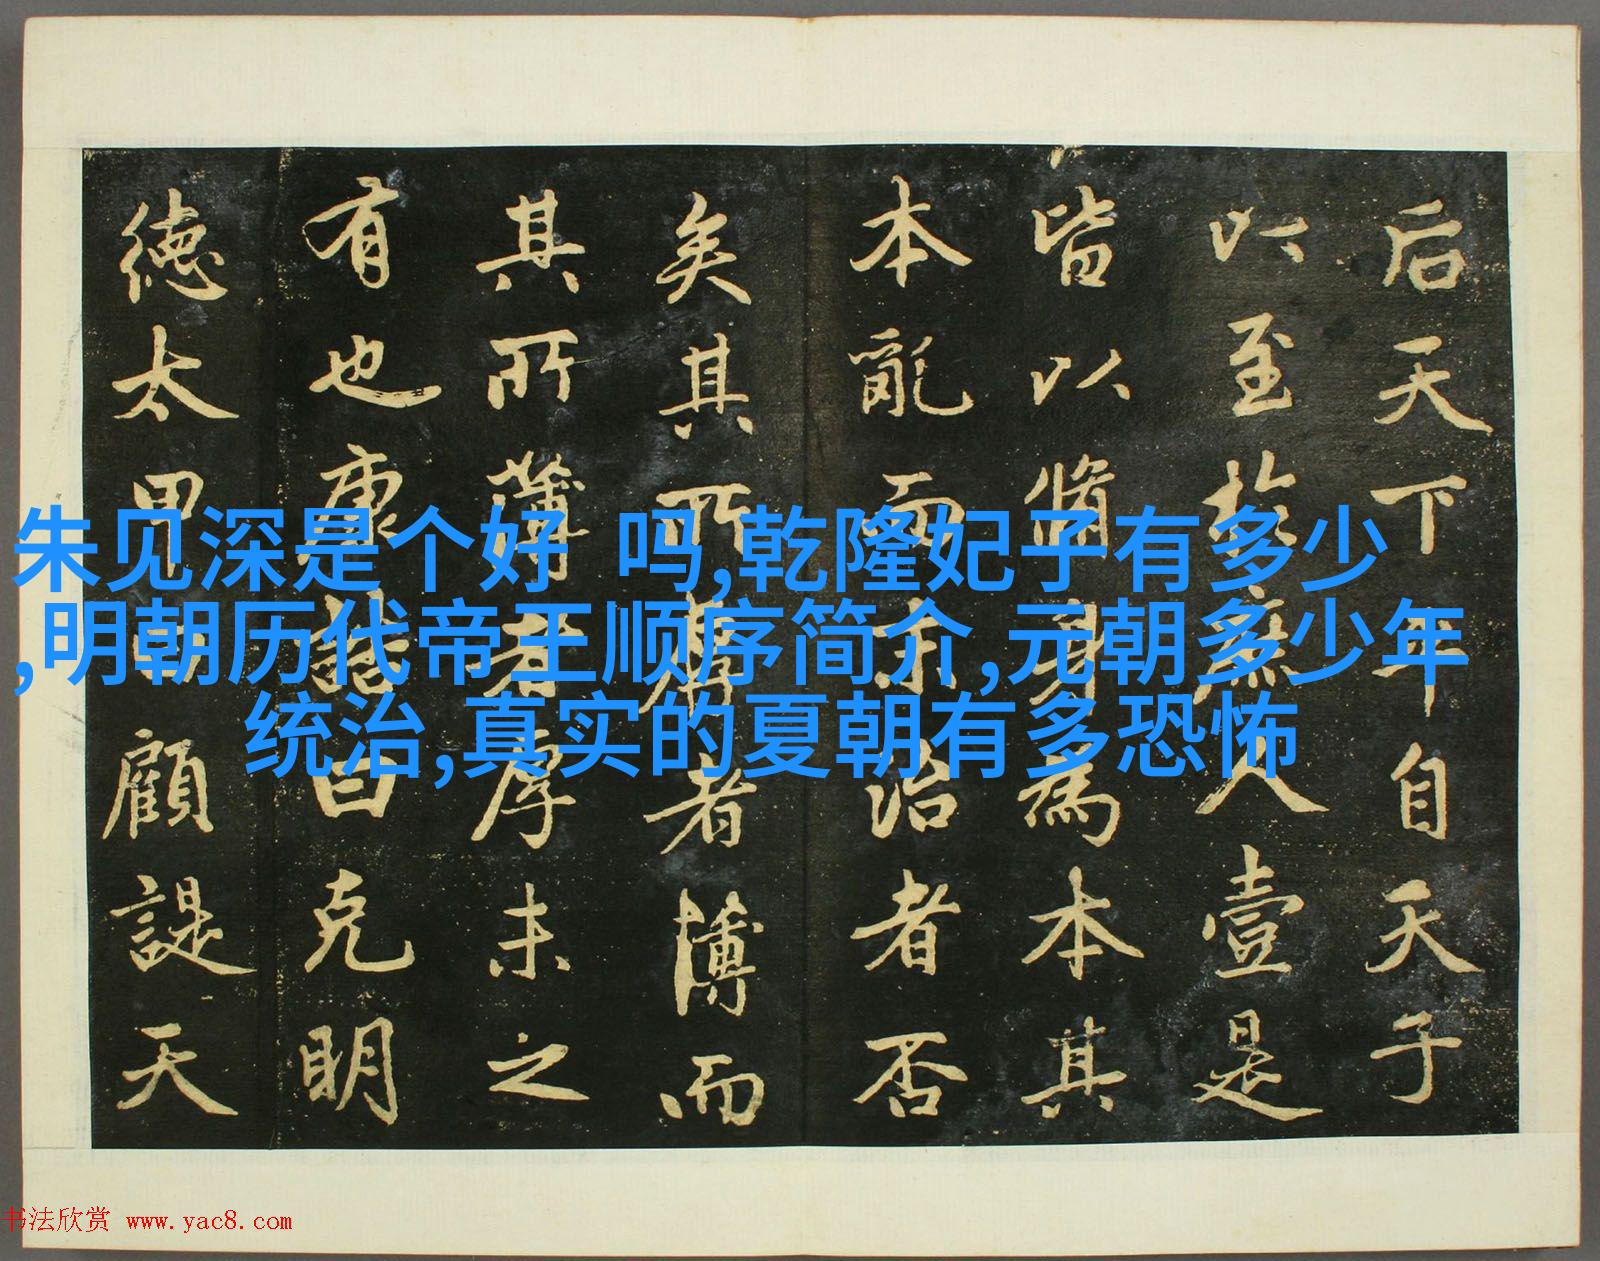 后天下平自天子
以至於庶人壹是
皆以脩身為本其
本亂而末治者否
矣其所厚者薄而
其所薄者厚未之
有也康誥曰克明
德太甲曰顧諟天
朱见深是个好 吗,乾隆妃子有多少
,明朝历代帝王顺序简介,元朝多少年
统治,真实的夏朝有多恐怖
书法欣赏 www.yac8.com